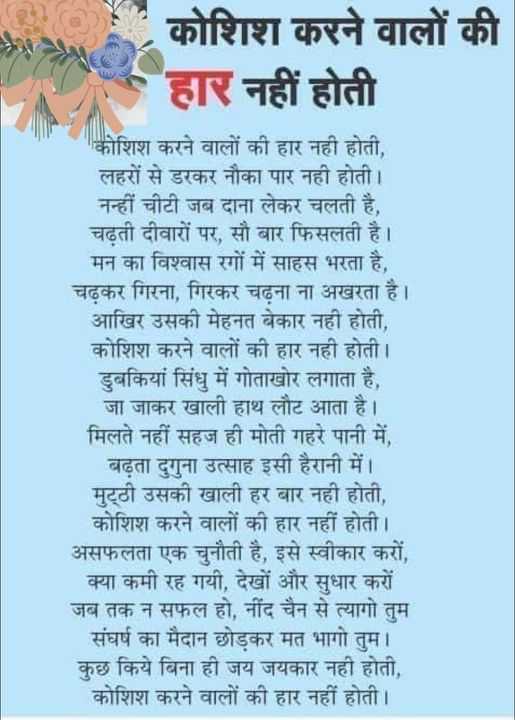 कोशिश करने वालों की
हार नहीं होती
कोशिश करने वालों की हार नही होती,
लहरों से डरकर नौका पार नही होती।
नन्हीं चीटी जब दाना लेकर चलती है,
चढ़ती दीवारों पर, सौ बार फिसलती है।
मन का विश्वास रगों में साहस भरता है,
चढ़कर गिरना, गिरकर चढ़ना ना अखरता है।
आखिर उसकी मेहनत बेकार नही होती,
कोशिश करने वालों की हार नही होती।
डुबकियां सिंधु में गोताखोर लगाता है,
जा जाकर खाली हाथ लौट आता है।
मिलते नहीं सहज ही मोती गहरे पानी में,
बढ़ता दुगुना उत्साह इसी हैरानी में।
मुट्ठी उसकी खाली हर बार नही होती,
कोशिश करने वालों की हार नहीं होती।
असफलता एक चुनौती है, इसे स्वीकार करों,
क्या कमी रह गयी, देखों और सुधार करों
जब तक न सफल हो, नींद चैन से त्यागो तुम
संघर्ष का मैदान छोड़कर मत भागो तुम।
कुछ किये बिना ही जय जयकार नही होती,
कोशिश करने वालों की हार नहीं होती।